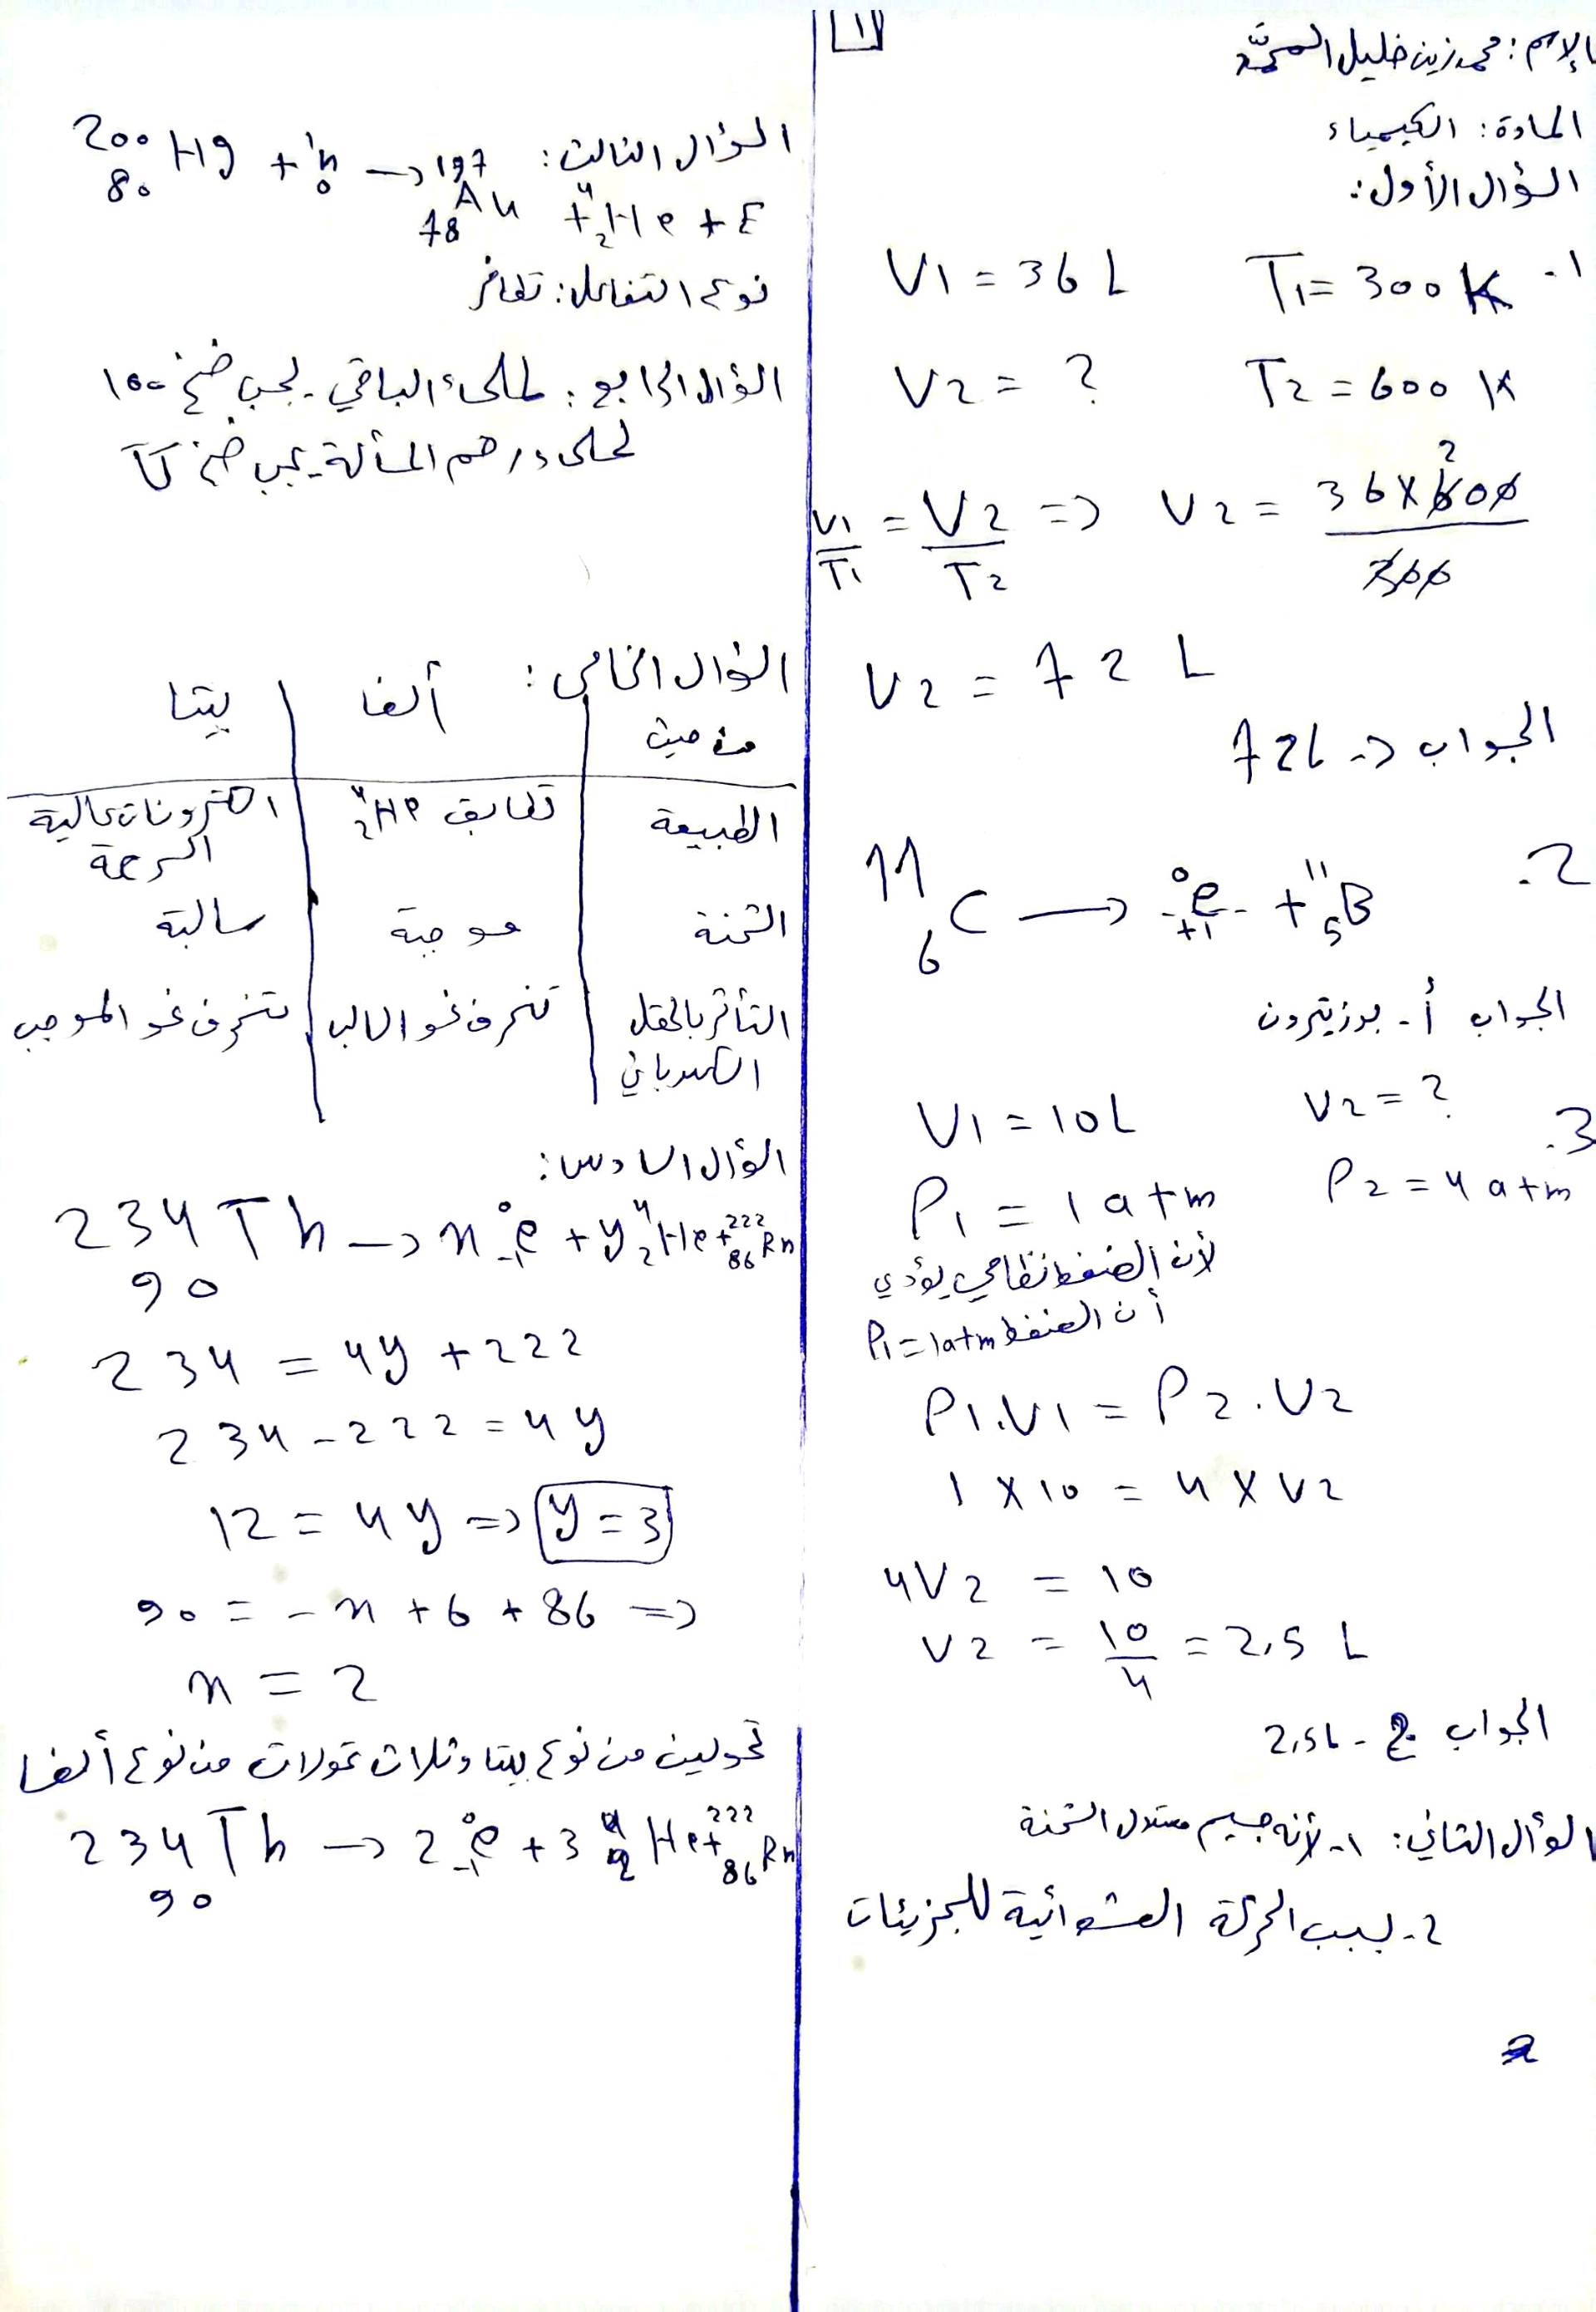 1
الإسم: محمد زين خليل المحمَّد
المادة: الكيمياء
السؤال الأول:
1- T1 = 300 K V1 = 36 L
T2 = 600 K V2 = ?
V1/T1 = V2/T2 => V2 = 36 x 600 / 300
2
V2 = 72 L
الجواب د- 72L
2. 11 6 C → 0 +1 e + 11 5 B
الجواب أ- بوزيترون
3. V1 = 10 L V2 = ?
P1 = 1 atm P2 = 4 atm
لأن الضغط نظامي يؤدي
أن الضغط P1 = 1 atm
P1.V1 = P2.V2
1 x 10 = 4 x V2
4V2 = 10
V2 = 10/4 = 2,5 L
الجواب ج- 2,5L
السؤال الثاني: 1- لأنه جسيم معتدل الشحنة
2- بسبب الحركة العشوائية للجزيئات
السؤال الثالث: 200 80 Hg + 1 0 n → 197 78 Au + 4 2 He + E
نوع التفاعل: تطافر
السؤال الرابع: الباقي - يجب 100
المسألة - يجب
السؤال الخامس:
من حيث | ألفا | بيتا
الطبيعة | تطابق 4 2 He | الكترونات عالية السرعة
الشحنة | موجبة | سالبة
التأثر بالحقل الكهربائي | تنحرف نحو السالب | تنحرف نحو الموجب
السؤال السادس:
234 90 Th → x 0 -1 e + y 4 2 He + 222 86 Rn
234 = 4y + 222
234 - 222 = 4y
12 = 4y => y = 3
90 = -x + 6 + 86 =>
x = 2
تحولين من نوع بيتا وثلاث تحولات من نوع ألفا
234 90 Th → 2 0 -1 e + 3 4 2 He + 222 86 Rn